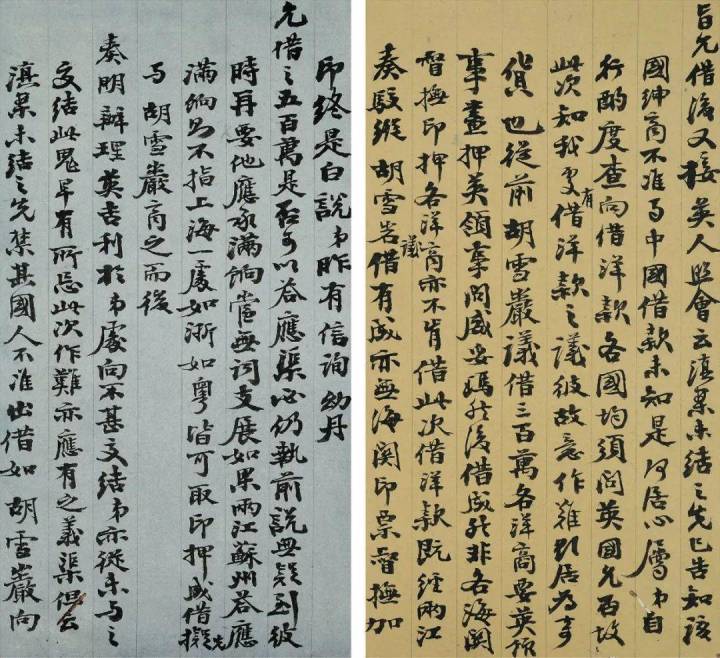 旨允借後又接英人照會云滇案未结之先已告知該
國紳商不准与中國借款未知是何居心層弟自
行酌度查向借洋款各國均須問英國允否故
此次知我更有借洋款之議彼故意作難引居為奇
貨也從前胡雪巖議借三百萬各洋商要英領
事畫押英領事問威妥瑪然後借成然非各海関
督撫印押各洋商亦不肯借此次借洋款既經兩江
奏駁縱胡雪岩議借有成亦無海関印票督撫加
印終是白說弟昨有信詢幼丹
允借之五百萬是否可以答應渠必仍執前說無疑到彼
時再要他應承滿餉當無詞支展如果兩江蘇州答應
滿餉即不指上海一處如浙如粵皆可取印押成借擬先
与胡雪巖商之而後
奏明辦理英吉利於弟處向不甚交结弟亦從未与之
交结此鬼早有所忌此次作難亦應有之義渠但云
滇案未结之先禁其國人不准出借如胡雪巖向